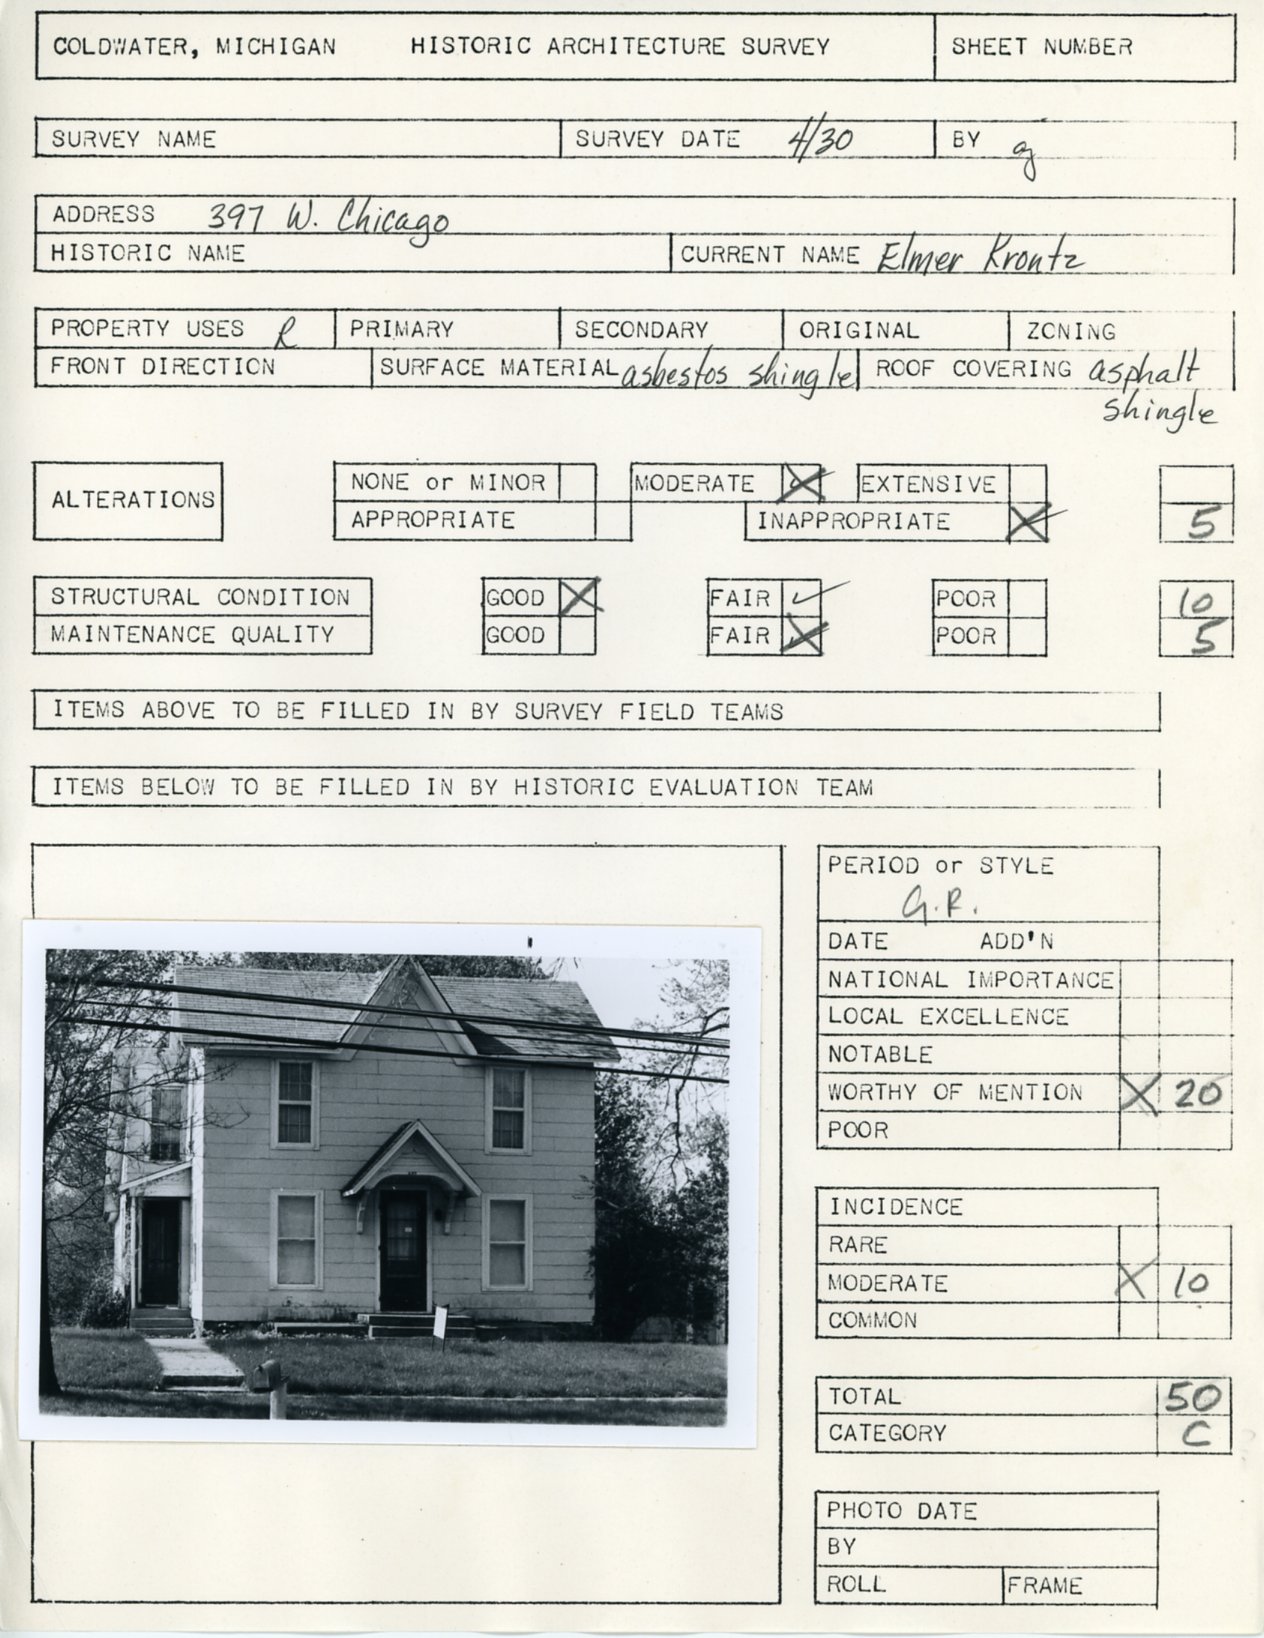 COLDWATER, MICHIGAN HISTORIC ARCHITECTURE SURVEY SHEET NUMBER
SURVEY NAME SURVEY DATE 4/30 BY g
ADDRESS 397 W. Chicago
HISTORIC NAME CURRENT NAME Elmer Krontz
PROPERTY USES R PRIMARY SECONDARY ORIGINAL ZONING
FRONT DIRECTION SURFACE MATERIAL asbestos shingle ROOF COVERING asphalt
shingle
ALTERATIONS NONE or MINOR MODERATE X EXTENSIVE
APPROPRIATE INAPPROPRIATE X 5
STRUCTURAL CONDITION GOOD X FAIR ✓ POOR 10
MAINTENANCE QUALITY GOOD FAIR X POOR 5
ITEMS ABOVE TO BE FILLED IN BY SURVEY FIELD TEAMS
ITEMS BELOW TO BE FILLED IN BY HISTORIC EVALUATION TEAM
PERIOD or STYLE
G.R.
DATE ADD'N
NATIONAL IMPORTANCE
LOCAL EXCELLENCE
NOTABLE
WORTHY OF MENTION X 20
POOR
INCIDENCE
RARE
MODERATE X 10
COMMON
TOTAL 50
CATEGORY C
PHOTO DATE
BY
ROLL FRAME